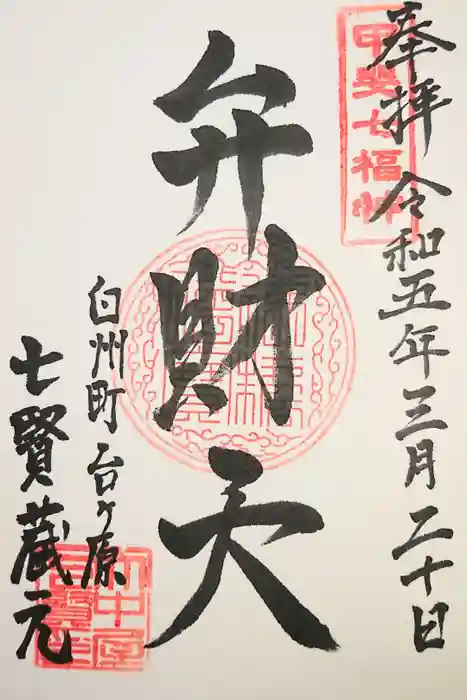 奉拝 令和五年三月二十日
甲斐七福神
弁財天
白州町 台ヶ原
七賢蔵元